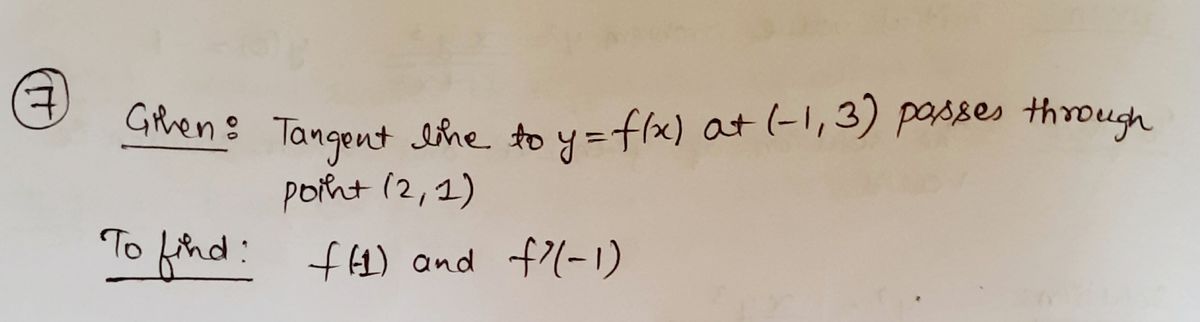 7 Given: Tangent line to y=f(x) at (-1,3) passes through
point (2,1)
To find: f(-1) and f'(-1)